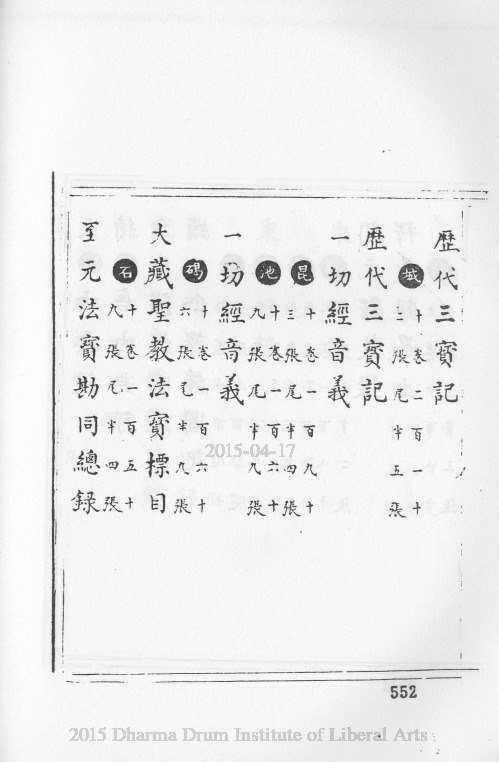 歷代三寶記
城 十卷二百一十
三張尾半五張
歷代三寶記
一切經音義
昆 十卷一百九十
三張尾半四張
池 十卷一百六十
九張尾半九張
一切經音義
碣 十卷一百六十
六張尾半九張
大藏聖教法寶標目
石 十卷一百五十
九張尾半四張
至元法寶勘同總錄
2015-04-17
552
2015 Dharma Drum Institute of Liberal Arts